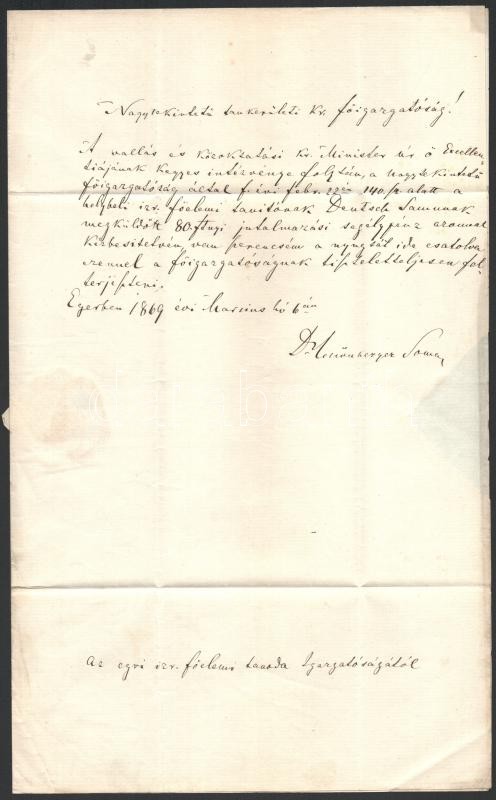 Nagytekintetű tankerületi kir. főigazgatóság!
A vallás és közoktatási kir. Minister úr ő Excellen-
tiájának kegyes intézvénye folytán, a nagytekintetű
főigazgatóság által f. évi febr. 22én 140. sz. alatt a
helybeli izr. főelemi tanitónak Deutsch Samunak
megküldött 80. ftnyi jutalmazási segélypénz azonnal
kézbesitetvén, van szerencsém a nyugtát ide csatolva
ezennel a főigazgatóságnak tiszteletteljesen fel-
terjeszteni.
Egerben 1869 évi Marcius hó 6án
Dr Schönberger Soma
az egri izr. főelemi tanoda Igazgatóságától